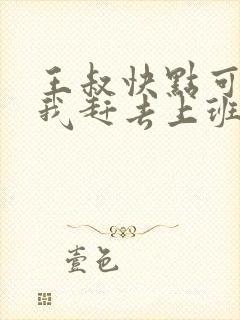 王叔快點可
我赶去上班
壹色